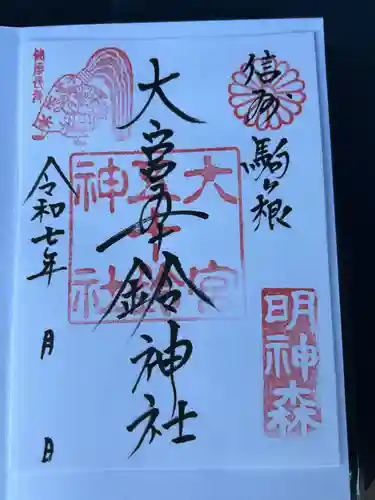 信州
駒ヶ根
明神森
大宮五十鈴神社
大宮
五十鈴
神社
令和七年 月 日